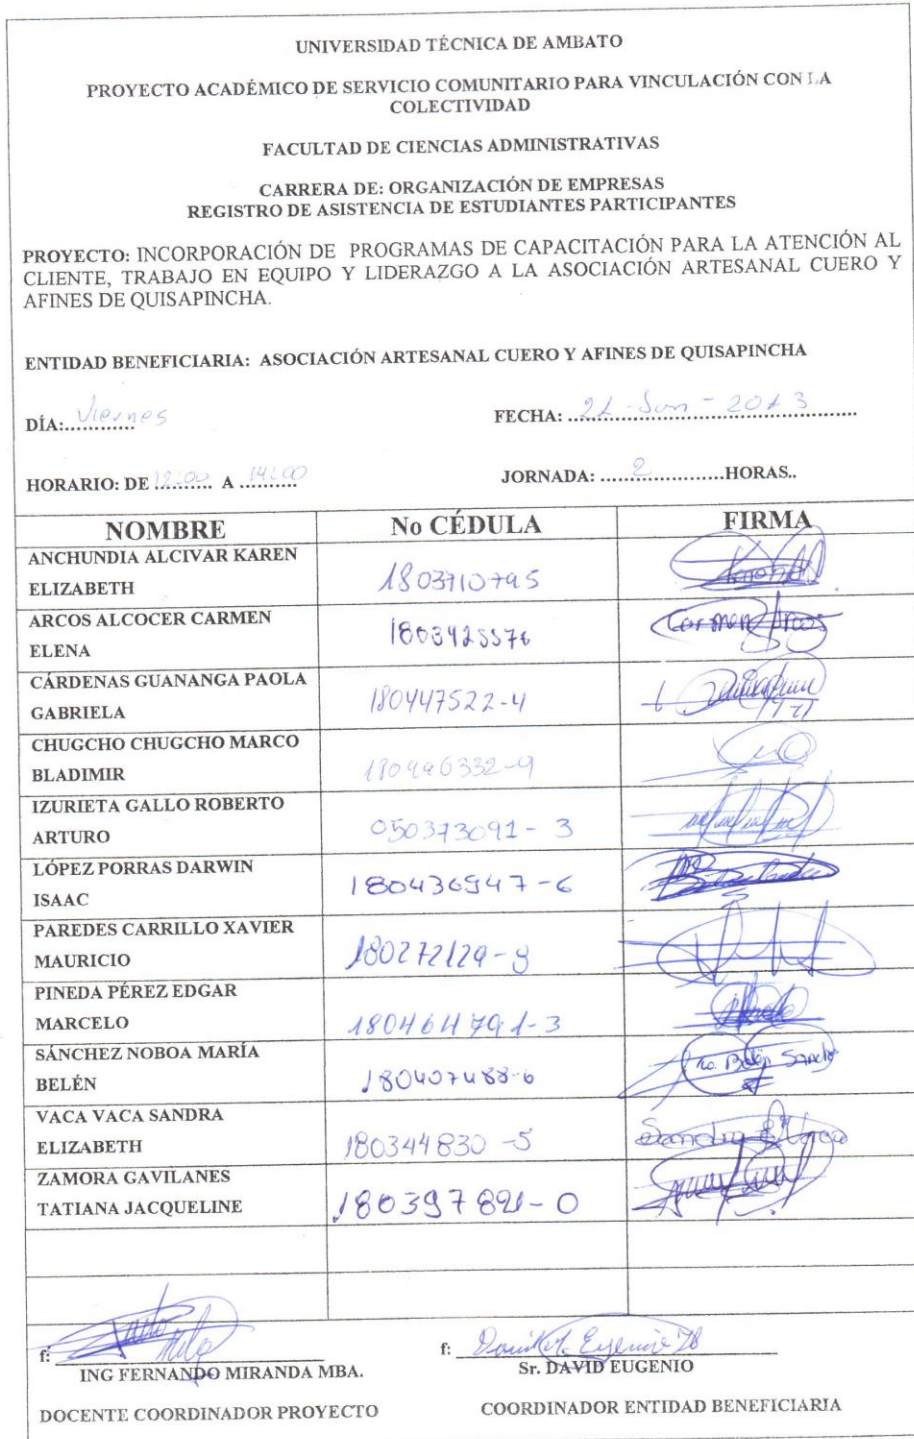 UNIVERSIDAD TÉCNICA DE AMBATO
PROYECTO ACADÉMICO DE SERVICIO COMUNITARIO PARA VINCULACIÓN CON LA
COLECTIVIDAD
FACULTAD DE CIENCIAS ADMINISTRATIVAS
CARRERA DE: ORGANIZACIÓN DE EMPRESAS
REGISTRO DE ASISTENCIA DE ESTUDIANTES PARTICIPANTES
PROYECTO: INCORPORACIÓN DE PROGRAMAS DE CAPACITACIÓN PARA LA ATENCIÓN AL
CLIENTE, TRABAJO EN EQUIPO Y LIDERAZGO A LA ASOCIACIÓN ARTESANAL CUERO Y
AFINES DE QUISAPINCHA.
ENTIDAD BENEFICIARIA: ASOCIACIÓN ARTESANAL CUERO Y AFINES DE QUISAPINCHA
DÍA: Viernes FECHA: 21 - Jun - 2013
HORARIO: DE 12:00 A 14:00 JORNADA: 2 HORAS..
NOMBRE No CÉDULA FIRMA
ANCHUNDIA ALCIVAR KAREN
ELIZABETH 1803710795
ARCOS ALCOCER CARMEN
ELENA 1803425576 Carmen Arcos
CÁRDENAS GUANANGA PAOLA
GABRIELA 180447522-4
CHUGCHO CHUGCHO MARCO
BLADIMIR 180496332-9
IZURIETA GALLO ROBERTO
ARTURO 050373091-3
LÓPEZ PORRAS DARWIN
ISAAC 180436947-6
PAREDES CARRILLO XAVIER
MAURICIO
PINEDA PÉREZ EDGAR
MARCELO 180464791-3
SÁNCHEZ NOBOA MARÍA
BELÉN 180407488-6 Ma. Belén Sanche
VACA VACA SANDRA
ELIZABETH 180344830-5 Sandra E Vaca
ZAMORA GAVILANES
TATIANA JACQUELINE 180397891-0
f: f:
ING FERNANDO MIRANDA MBA. Sr. DAVID EUGENIO
DOCENTE COORDINADOR PROYECTO COORDINADOR ENTIDAD BENEFICIARIA